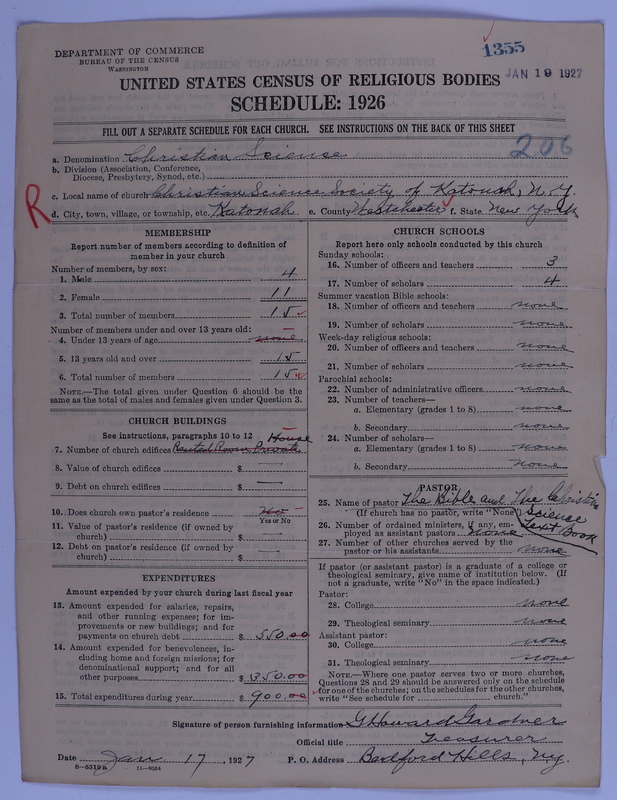 DEPARTMENT OF COMMERCE
BUREAU OF THE CENSUS
WASHINGTON
1355
JAN 19 1927
UNITED STATES CENSUS OF RELIGIOUS BODIES
SCHEDULE: 1926
FILL OUT A SEPARATE SCHEDULE FOR EACH CHURCH. SEE INSTRUCTIONS ON THE BACK OF THIS SHEET
206
a. Denomination Christian Science
b. Division (Association, Conference,
Diocese, Presbytery, Synod, etc.)
c. Local name of church Christian Science Society of Katonah, N.Y.
R
d. City, town, village, or township, etc. Katonah e. County Westchester f. State New York
MEMBERSHIP
Report number of members according to definition of
member in your church
Number of members, by sex:
1. Male 4
2. Female 11
3. Total number of members 15
Number of members under and over 13 years old:
4. Under 13 years of age none
5. 13 years old and over 15
6. Total number of members 15
NOTE.—The total given under Question 6 should be the
same as the total of males and females given under Question 3.
CHURCH BUILDINGS
See instructions, paragraphs 10 to 12 House
7. Number of church edifices Rented Room Private
8. Value of church edifices $ —
9. Debt on church edifices $ —
10. Does church own pastor's residence No
Yes or No
11. Value of pastor's residence (if owned by
church) $ —
12. Debt on pastor's residence (if owned by
church) $ —
EXPENDITURES
Amount expended by your church during last fiscal year
13. Amount expended for salaries, repairs,
and other running expenses; for im-
provements or new buildings; and for
payments on church debt $ 550.00
14. Amount expended for benevolences, in-
cluding home and foreign missions; for
denominational support; and for all
other purposes $ 350.00
15. Total expenditures during year $ 900.00
CHURCH SCHOOLS
Report here only schools conducted by this church
Sunday schools:
16. Number of officers and teachers 3
17. Number of scholars 4
Summer vacation Bible schools:
18. Number of officers and teachers none
19. Number of scholars none
Week-day religious schools:
20. Number of officers and teachers none
21. Number of scholars none
Parochial schools:
22. Number of administrative officers none
23. Number of teachers—
a. Elementary (grades 1 to 8) none
b. Secondary none
24. Number of scholars—
a. Elementary (grades 1 to 8) none
b. Secondary none
PASTOR
25. Name of pastor The Bible and The Christian
(If church has no pastor, write "None") Science
26. Number of ordained ministers, if any, em-
ployed as assistant pastors none Text Book
27. Number of other churches served by the
pastor or his assistants none
If pastor (or assistant pastor) is a graduate of a college or
theological seminary, give name of institution below. (If
not a graduate, write "No" in the space indicated.)
Pastor:
28. College none
29. Theological seminary none
Assistant pastor:
30. College none
31. Theological seminary none
NOTE.—Where one pastor serves two or more churches,
Questions 28 and 29 should be answered only on the schedule
for one of the churches; on the schedules for the other churches,
write "See schedule for church."
Signature of person furnishing information G Howard Gardner
Official title Treasurer
Date Jan 17, 1927 P. O. Address Bedford Hills, N.Y.
8-5518a 11-9034